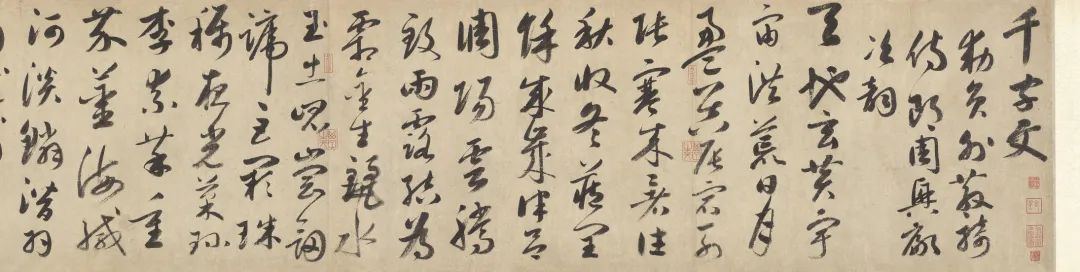 千字文
勅員外散騎
侍郎周興嗣
次韻
天地玄黃宇
宙洪荒日月
盈昃辰宿列
張寒來暑往
秋收冬藏閏
餘成歲律呂
調陽雲騰
致雨露結為
霜金生麗水
玉出崑崗劍
號巨闕珠
稱夜光菓珍
李柰菜重
芥薑海鹹
河淡鱗潛羽